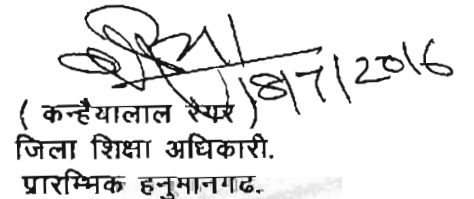 18/7/2016
( कन्हैयालाल रैयर )
जिला शिक्षा अधिकारी.
प्रारम्भिक हनुमानगढ.